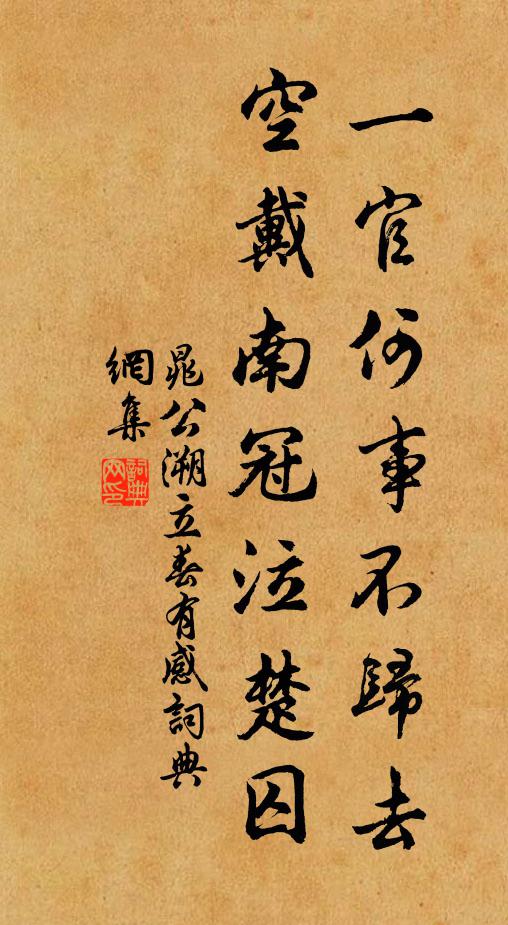 一官何事不歸去
空戴南冠泣楚囚
晁公溯立春有感詞典
網集
詞典
网印